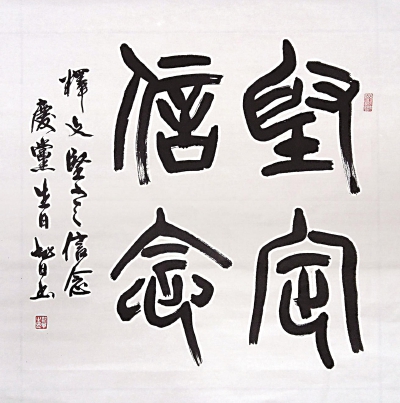 堅定
信念
釋文堅定信念
慶黨生日智書